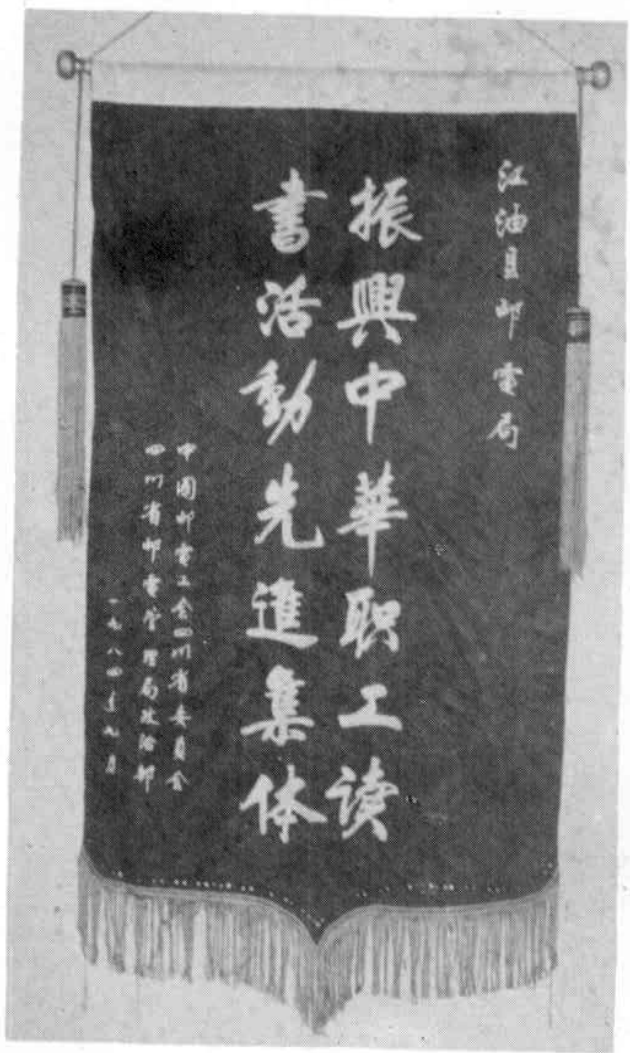 江油县邮電局
振興中華职工读
書活動先進集体
中國邮電工会四川省委員会
四川省邮電管理局政治部
一九八四年九月